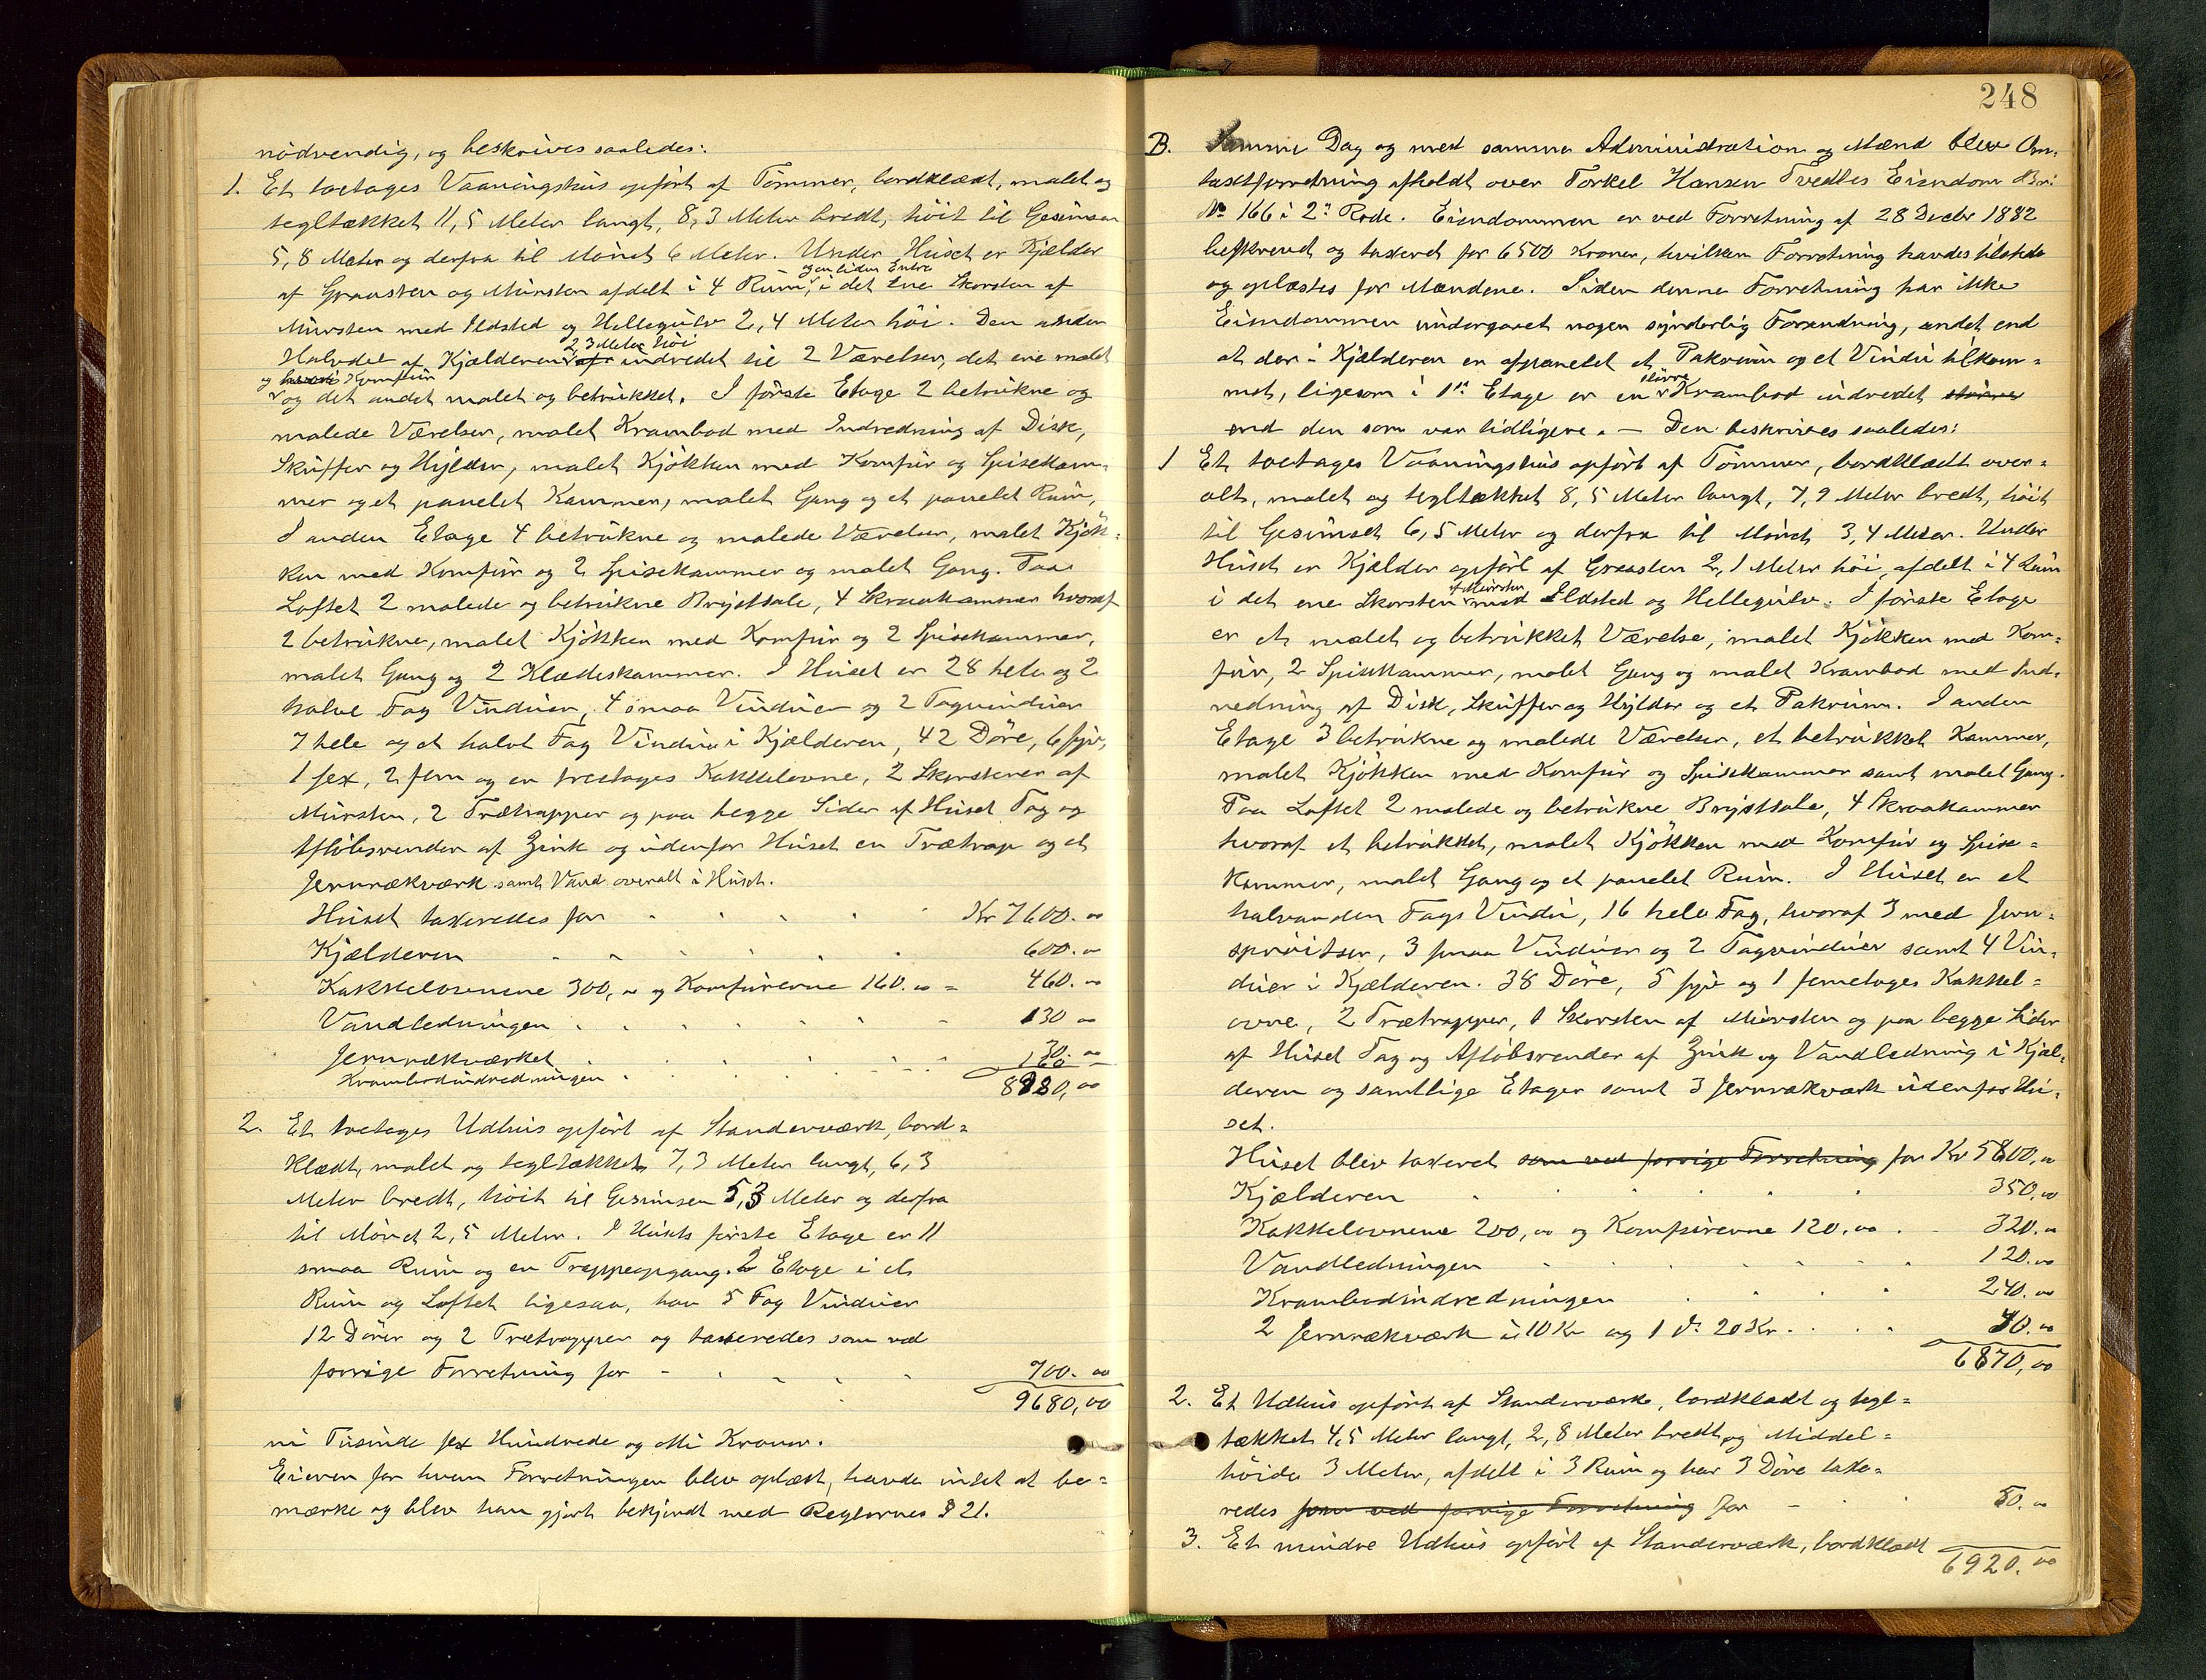 nödvendig, og beskrives saaledes:
1. Et toetages Vaaningshus opfört af Tömmer, bordklædt, malet og
tegltækket 11,5 Meter langt, 8,3 Meter bredt, höit til Gesimsen
5,8 Meter og derfra til Mönet 6 Meter. Under Huset er Kjælder
og en liden Entre
af Graasten og Mursten afdelt i 4 Rum, i det ene Skorsten af
Mursten med Ildsted og Hellegulv 2,4 Meter höi. Den anden
2,3 Meter höi
Halvdel af Kjælderen er indredet til 2 Værelser, det ene malet
og Komfur
og det andet malet og betrukket. I förste Etage 2 betrukne og
malede Værelser, malet Krambod med Indredning af Disk,
Skuffer og Hylder, malet Kjökken med Komfur og Spisekam=
mer og et panelet Kammer, malet Gang og et panelet Rum,
I anden Etage 4 betrukne og malede Værelser, malet Kjök=
ken med Komfur og 2 Spisekammer og malet Gang. Paa
Loftet 2 malede og betrukne Brystsale, 4 Skraakammer hvoraf
2 betrukne, malet Kjökken med Komfur og 2 Spisekammer,
malet Gang og 2 Klædeskammer. I Huset er 28 hele og 2
halve Fag Vinduer, 4 smaa Vinduer og 2 Tagvinduer
7 hele og et halvt Fag Vindu i Kjælderen, 42 Döre, 6 fyr,
1 sex, 2 fem og en treetages Kakkelovne, 2 Skorstene af
Mursten, 2 Trætrapper og paa begge Sider af Huset Tag og
Aflöbsrender af Zink og udenfor Huset en Trætrap og et
Jernrækværk samt Vand overalt i Huset.
Huset taxeredes for Kr 7600.00
Kjælderen 600.00
Kakkelovnene 300,00 og Komfurerne 160.00 = 460.00
Vandledningen 130 00
Jernrækværket 30.00
Krambodindredningen 160
8980,00
2. Et toetages Udhus opfört af Standerværk, bord=
klædt, malet og tegltækket 7,3 Meter langt, 6,3
Meter bredt, höit til Gesimsen 5,3 Meter og derfra
til Mönet 2,5 Meter. I Husets förste Etage er 11
smaa Rum og en Trappeopgang. 2 Etage i et
Rum og Loftet ligesaa, har 5 Fag Vinduer
12 Dörer og 2 Trætrapper og taxeredes som ved
forrige Forretning for 700.00
9680,00
ni Tusinde sex Hundrede og otti Kroner.
Eieren for hvem Forretningen blev oplæst, havde intet at be=
mærke og blev han gjort bekjendt med Reglernes § 21.
248
B. Samme Dag og med samme Administration og Mænd blev Om=
taxtforretning afholdt over Torkel Hansen Tvedtes Eiendom Br:
No 166 i 2den Rode. Eiendommen er ved Forretning af 28 Decbr 1882
beskrevet og taxeret for 6500 Kroner, hvilken Forretning havdes tilstede
og oplæstes for Mændene. Siden denne Forretning har ikke
Eiendommen undergaaet nogen synderlig Forandring, andet end
at der i Kjælderen er afpanelet et Pakrum og et Vindu tilkom=
större
met, ligesom i 1ste Etage er en Krambod indredet större
end den som var tidligere. — Den beskrives saaledes:
1 Et toetages Vaaningshus opfört af Tömmer, bordklædt over=
alt, malet og tegltækket 8,5 Meter langt, 7,9 Meter bredt, höit
til Gesimset 6,5 Meter og derfra til Mönet 3,4 Meter. Under
Huset er Kjælder opfört af Graasten 2,1 Meter höi, afdelt i 4 Rum
af Mursten
i det ene Skorsten med Ildsted og Hellegulv. I förste Etage
er et malet og betrukket Værelse, malet Kjökken med Kom=
fur, 2 Spisekammer, malet Gang og malet Krambod med Ind=
redning af Disk, Skuffer og Hylder og et Pakrum. I anden
Etage 3 betrukne og malede Værelser, et betrukket Kammer,
malet Kjökken med Komfur og Spisekammer samt malet Gang.
Paa Loftet 2 malede og betrukne Brystsale, 4 Skraakammer
hvoraf et betrukket, malet Kjökken med Komfur og Spise=
kammer, malet Gang og et panelet Rum. I Huset er et
halvanden Fags Vindu, 16 hele Fag, hvoraf 3 med Jern=
sproitser, 3 smaa Vinduer og 2 Tagvinduer samt 4 Vin=
duer i Kjælderen. 38 Döre, 5 fyr og 1 femetages Kakkel=
ovne, 2 Trætrapper, 1 Skorsten af Mursten og paa begge Sider
af Huset Tag og Aflöbsrender af Zink og Vandledning i Kjæl=
deren og samtlige Etager samt 3 Jernrækværk udenfor Hu=
set.
Huset blev taxeret som ved forrige Forretning for Kr 5800,00
Kjælderen 350,00
Kakkelovnene 200,00 og Komfurerne 120,00 320.00
Vandledningen 120.00
Krambodindredningen 240.00
2 Jernrækværk à 10 Kr og 1 do 20 Kr. 40.00
6870,00
2. Et Udhus opfört af Standerværk, bordklædt og tegl=
tækket 4,5 Meter langt, 2,8 Meter bredt og Middel=
höide 3 Meter, afdelt i 3 Rum og har 3 Döre taxe=
redes som ved forrige Forretning for 50.00
3. Et mindre Udhus opfört af Standerværk, bordklædt
6920.00